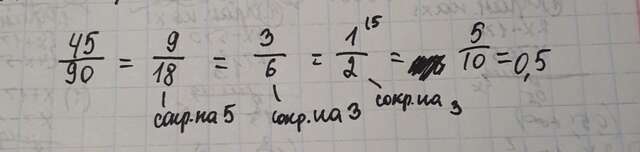 45/90 = 9/18 = 3/6 = 1^(5/2 = 5/10 = 0,5
сокр. на 5 сокр. на 3 сокр. на 3